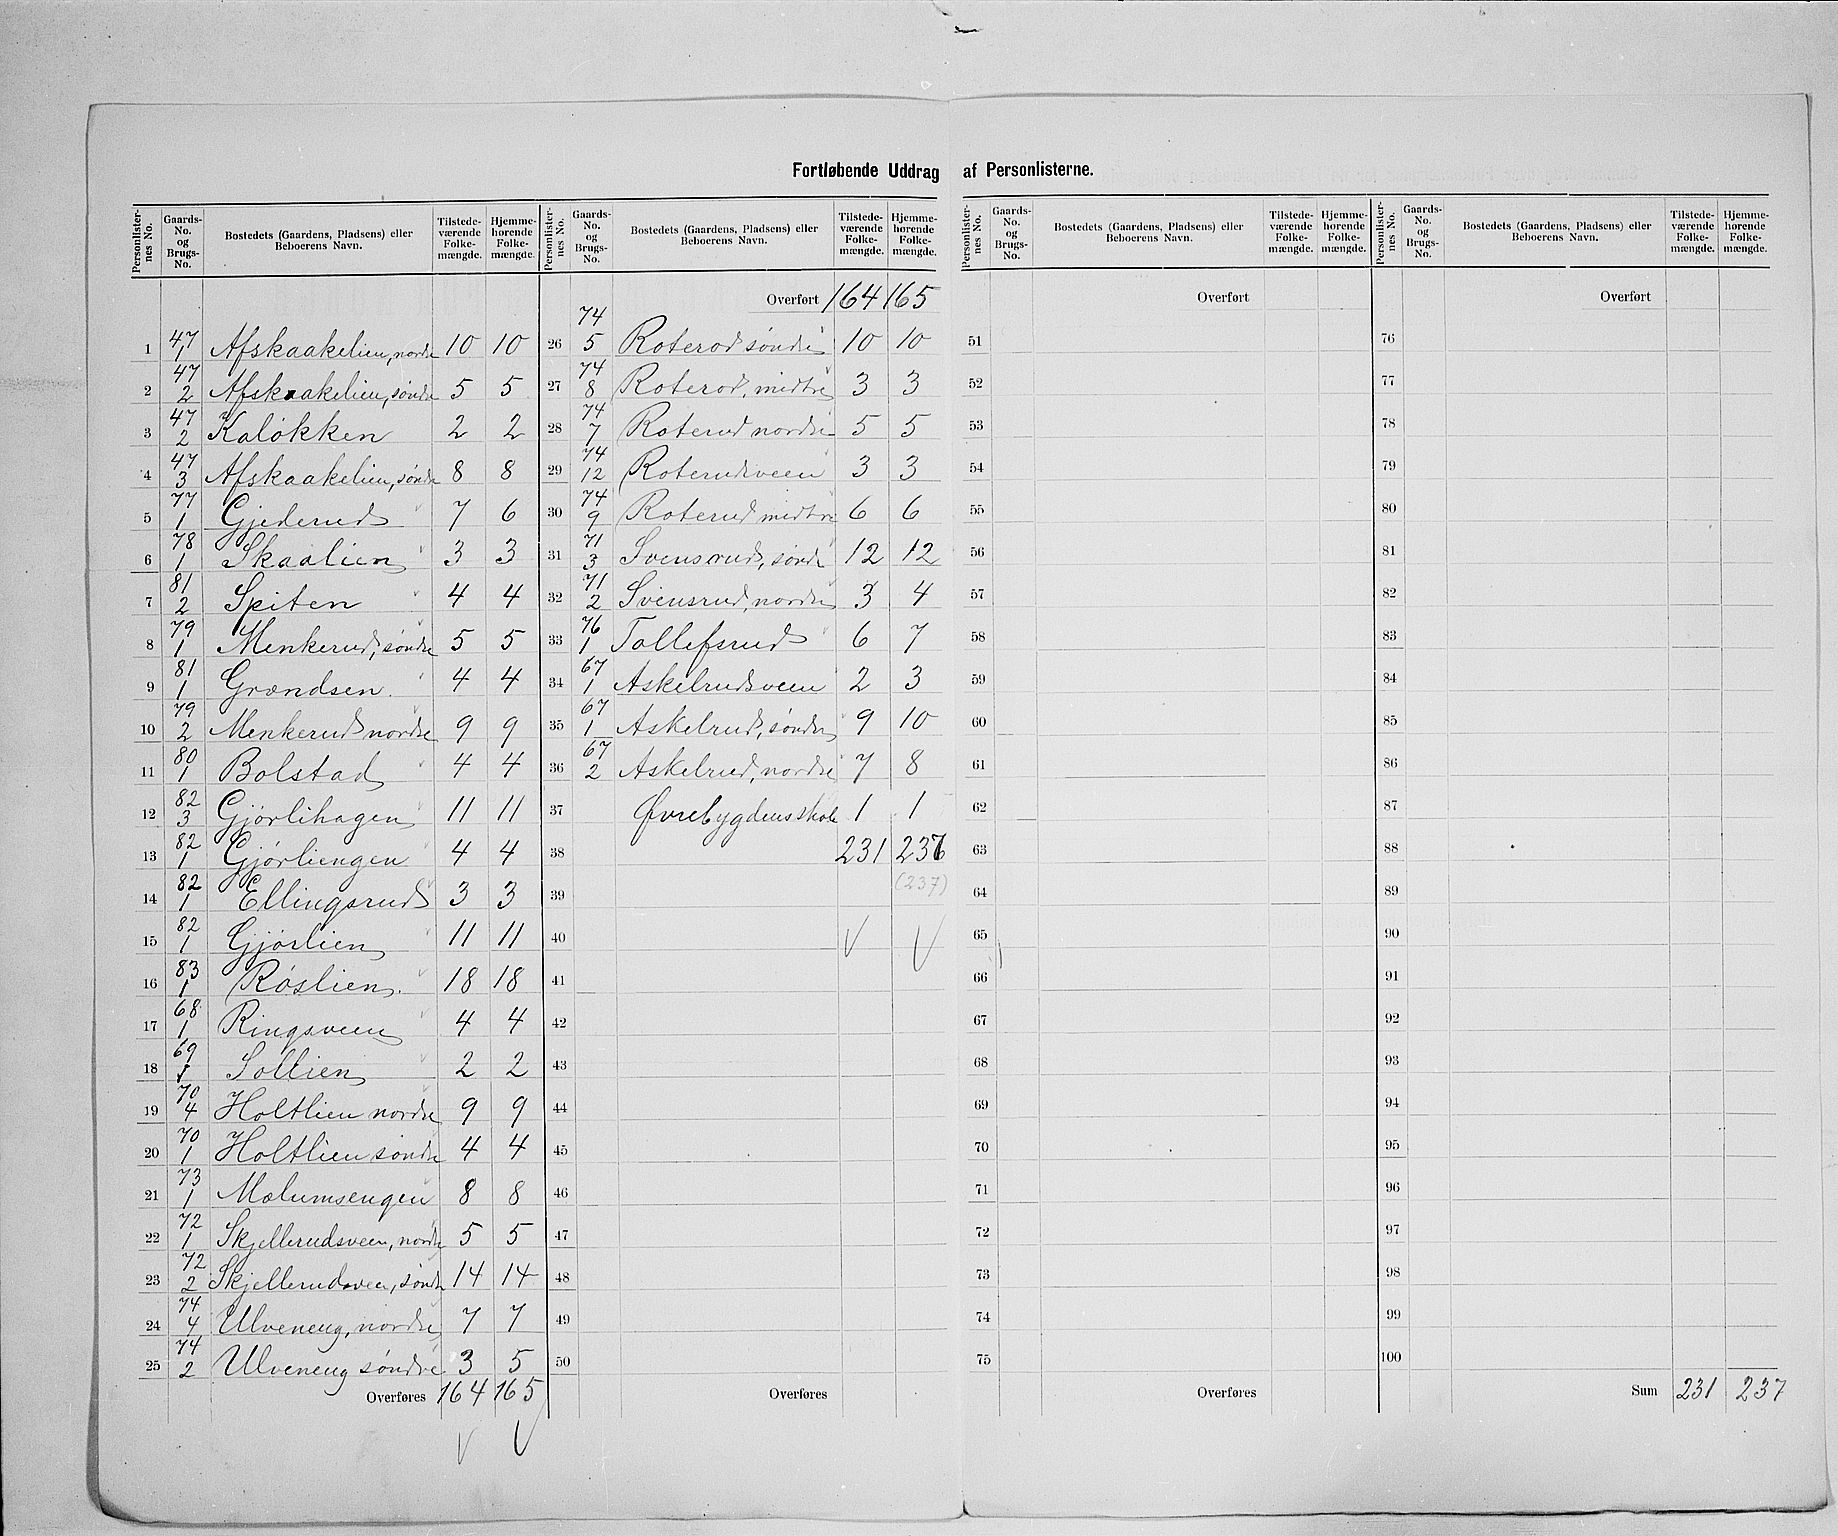 Fortløbende Uddrag af Personlisterne.
Personlister-nes No. | Gaards-No. og Brugs-No. | Bostedets (Gaardens, Pladsens) eller Beboerens Navn. | Tilstede-værende Folke-mængde. | Hjemme-hørende Folke-mængde.
1 | 47 1 | Afskaakelien, nordre | 10 | 10
2 | 47 2 | Afskaakelien, søndre | 5 | 5
3 | 47 2 | Kaløkken | 2 | 2
4 | 47 3 | Afskaakelien, søndre | 8 | 8
5 | 77 1 | Gjederud | 7 | 6
6 | 78 1 | Skaalien | 3 | 3
7 | 81 2 | Spiten | 4 | 4
8 | 79 1 | Menkerud, søndre | 5 | 5
9 | 81 1 | Grændsen. | 4 | 4
10 | 79 2 | Menkerud nordre | 9 | 9
11 | 80 1 | Bolstad | 4 | 4
12 | 82 3 | Gjørlihagen | 11 | 11
13 | 82 1 | Gjørliengen | 4 | 4
14 | 82 1 | Ellingsrud | 3 | 3
15 | 82 1 | Gjørlien | 11 | 11
16 | 83 1 | Røslien. | 18 | 18
17 | 68 1 | Ringsveen | 4 | 4
18 | 69 1 | Sollien | 2 | 2
19 | 70 4 | Holtlien nordre | 9 | 9
20 | 70 1 | Holtlien søndre | 4 | 4
21 | 73 1 | Mælumsengen | 8 | 8
22 | 72 1 | Skjellerudsveen, nordre | 5 | 5
23 | 72 2 | Skjellerudsveen, søndre | 14 | 14
24 | 74 4 | Ulveneng, nordre | 7 | 7
25 | 74 2 | Ulveneng søndre | 3 | 5
Overføres 164 165
Personlister-nes No. | Gaards-No. og Brugs-No. | Bostedets (Gaardens, Pladsens) eller Beboerens Navn. | Tilstede-værende Folke-mængde. | Hjemme-hørende Folke-mængde.
Overført 164 165
26 | 74 5 | Roterod søndre | 10 | 10
27 | 74 8 | Roterod, midtre | 3 | 3
28 | 74 7 | Roterud nordre | 5 | 5
29 | 74 12 | Roterudsveen | 3 | 3
30 | 74 9 | Roterud midtre | 6 | 6
31 | 71 3 | Svensrud, søndre | 12 | 12
32 | 71 2 | Svensrud, nordre | 3 | 4
33 | 76 1 | Tollefsrud | 6 | 7
34 | 67 1 | Askelrudsveen | 2 | 3
35 | 67 1 | Askelrud, søndre | 9 | 10
36 | 67 2 | Askelrud, nordre | 7 | 8
37 | Øvrebygdens skole | 1 | 1
38 | 231 | 237
39 | (237)
40
41
42
43
44
45
46
47
48
49
50
Overføres
Personlister-nes No. | Gaards-No. og Brugs-No. | Bostedets (Gaardens, Pladsens) eller Beboerens Navn. | Tilstede-værende Folke-mængde. | Hjemme-hørende Folke-mængde.
Overført
51
52
53
54
55
56
57
58
59
60
61
62
63
64
65
66
67
68
69
70
71
72
73
74
75
Overføres
Personlister-nes No. | Gaards-No. og Brugs-No. | Bostedets (Gaardens, Pladsens) eller Beboerens Navn. | Tilstede-værende Folke-mængde. | Hjemme-hørende Folke-mængde.
Overført
76
77
78
79
80
81
82
83
84
85
86
87
88
89
90
91
92
93
94
95
96
97
98
99
100
Sum 231 237